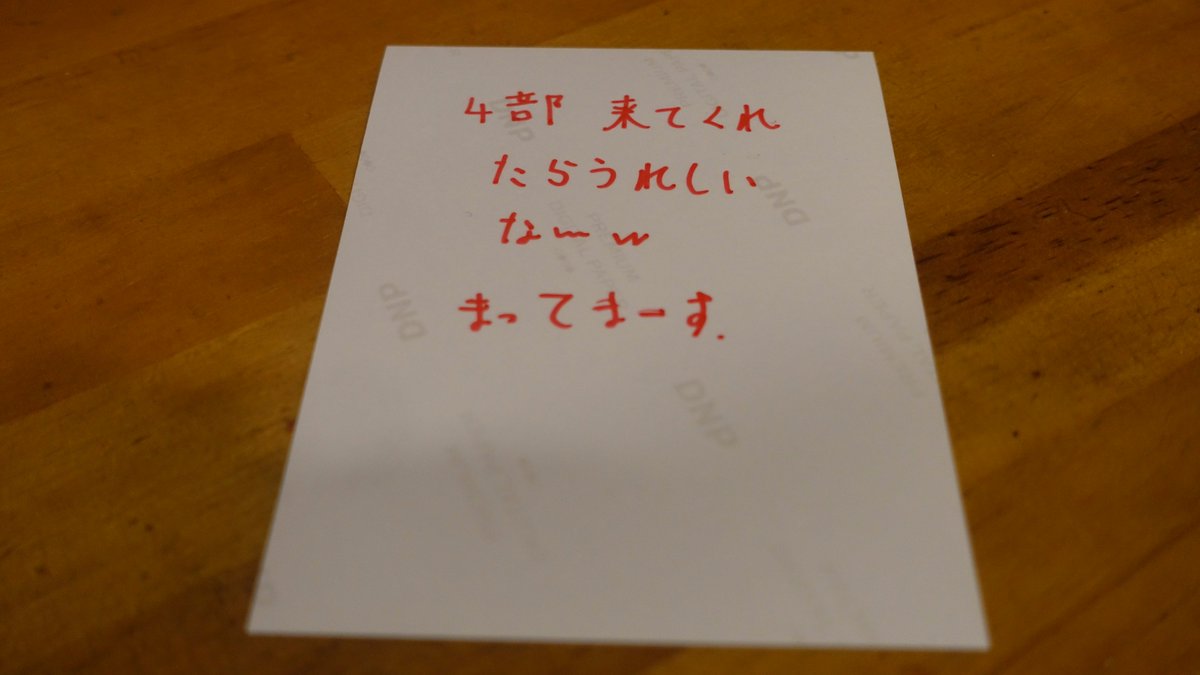 4部 来てくれ
たらうれしい
なーw
まってまーす.
DNP
DNP
DNP
DNP